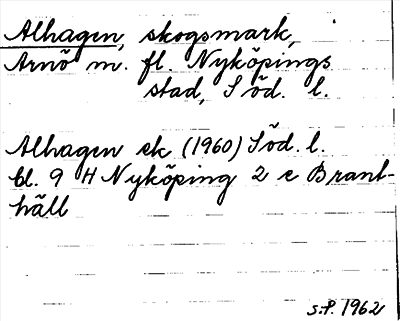 Alhagen, skogsmark,
Arnö m. fl. Nyköpings
stad, Söd. l.
Alhagen sk (1960) Söd. l.
bl. 9 H Nyköping 2 c Brant-
häll
s.P. 1962